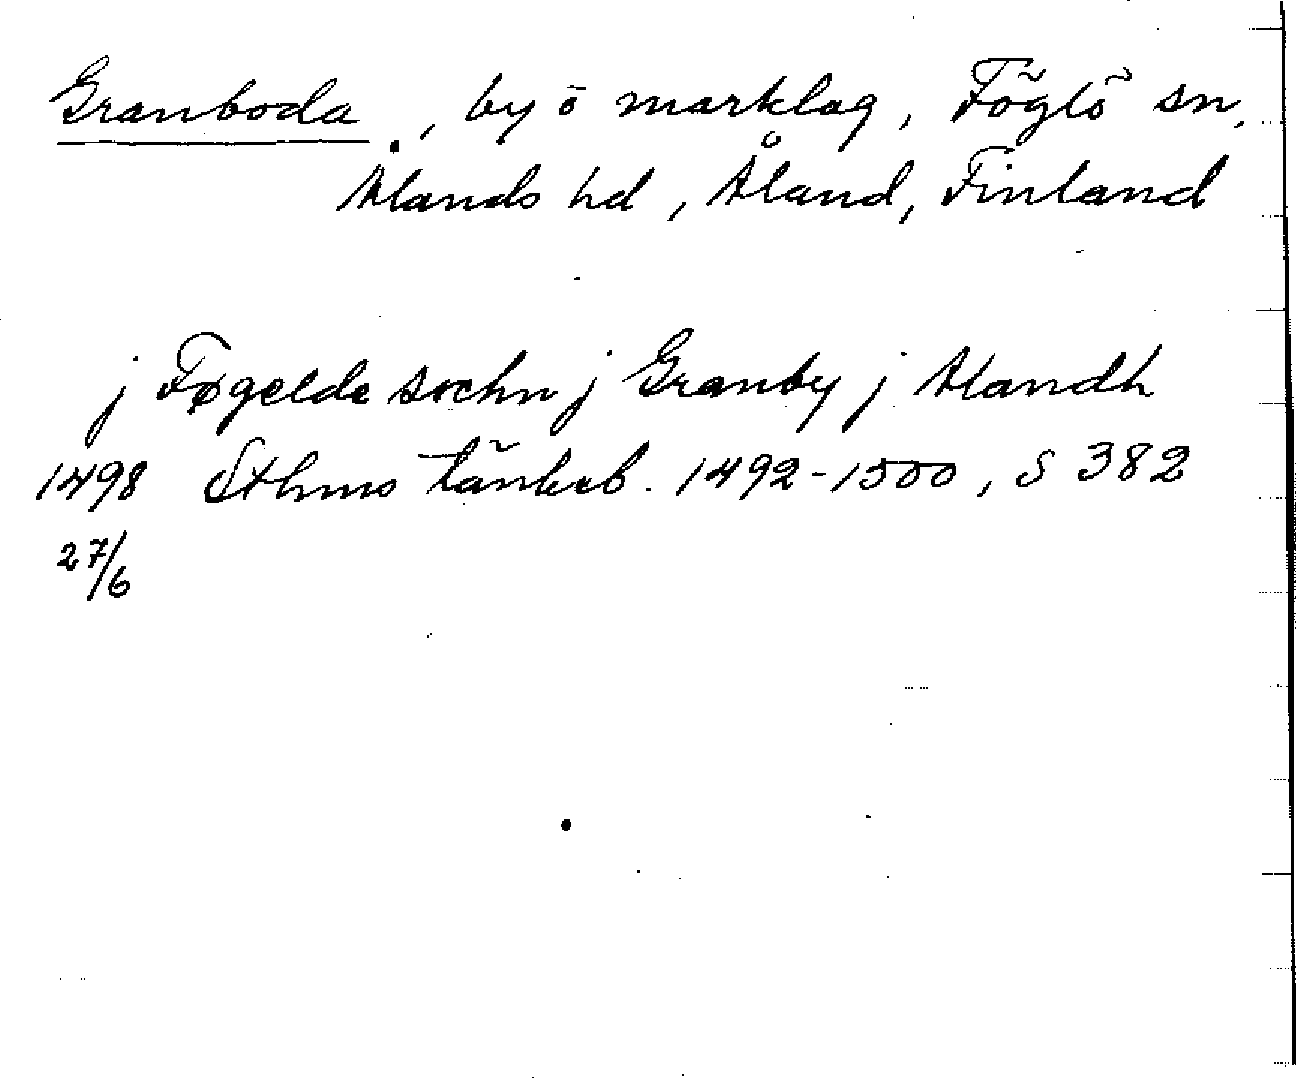 Granboda, by ö marklag, Föglö sn,
Ålands hd, Åland, Finland
j Føgelde sochn j Granby j Alandh
1498 Sthms tänkeb. 1492-1500, S 382
27/6